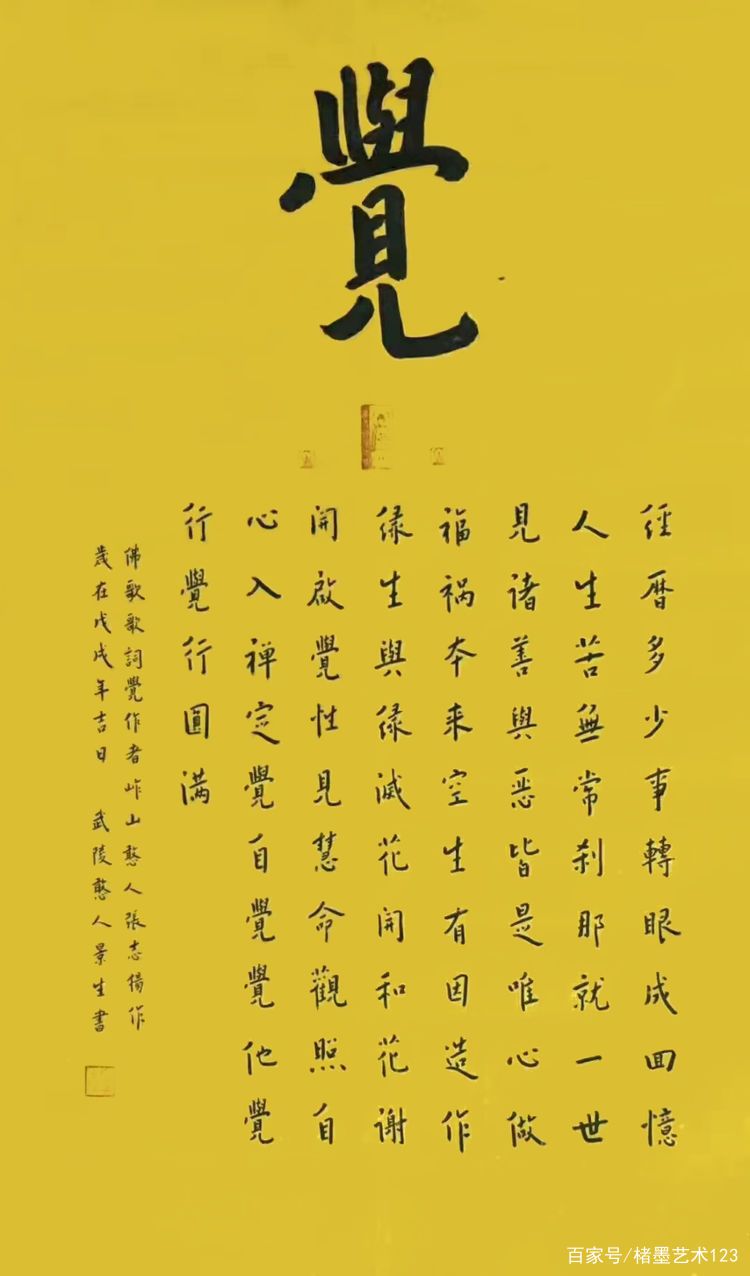 覺
經曆多少事轉眼成回憶
人生苦無常刹那就一世
見諸善與惡皆是唯心做
福祸本来空生有因造作
缘生與缘滅花開和花谢
開啟覺性見慧命觀照自
心入禅定覺自覺覺他覺
行覺行圓满
佛歌歌詞覺作者岞山憨人張志偈作
歲在戊戌年吉日 武陵憨人景生書
百家号/楮墨艺术123